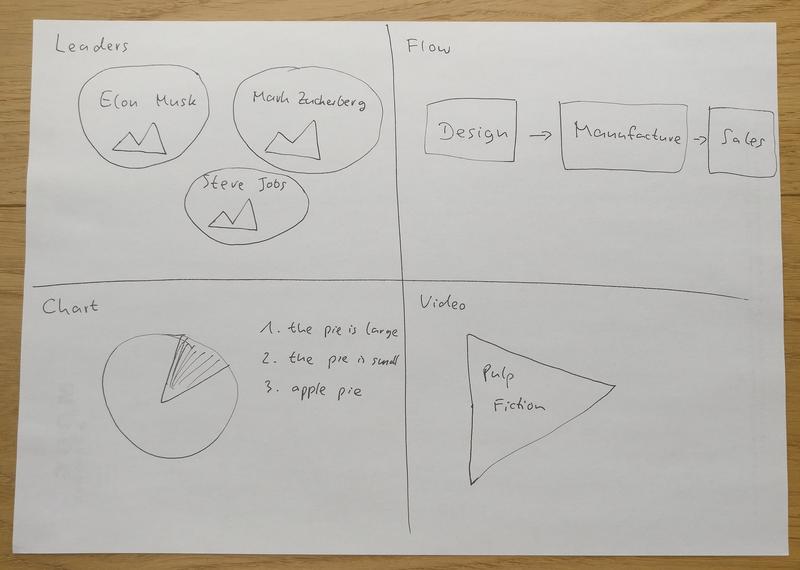 Leaders
Elon Musk
Mark Zuckerberg
Steve Jobs
Flow
Design → Manufacture → Sales
Chart
1. the pie is large
2. the pie is small
3. apple pie
Video
Pulp
Fiction